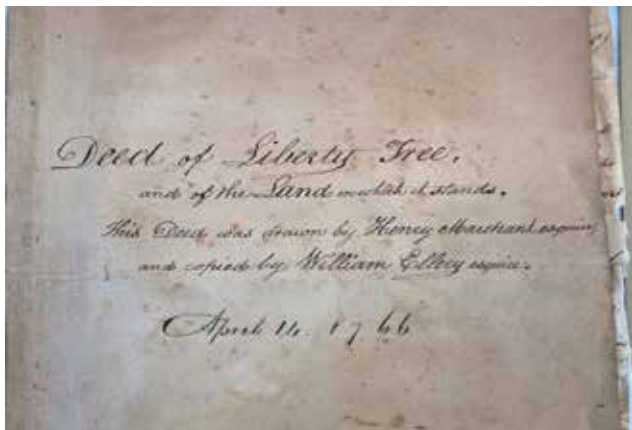 Deed of Liberty Tree.
and of the Land on which it stands.
This Deed was drawn by Henry Marchant esquire
and copied by William Ellery esquire.
April 14. 1766